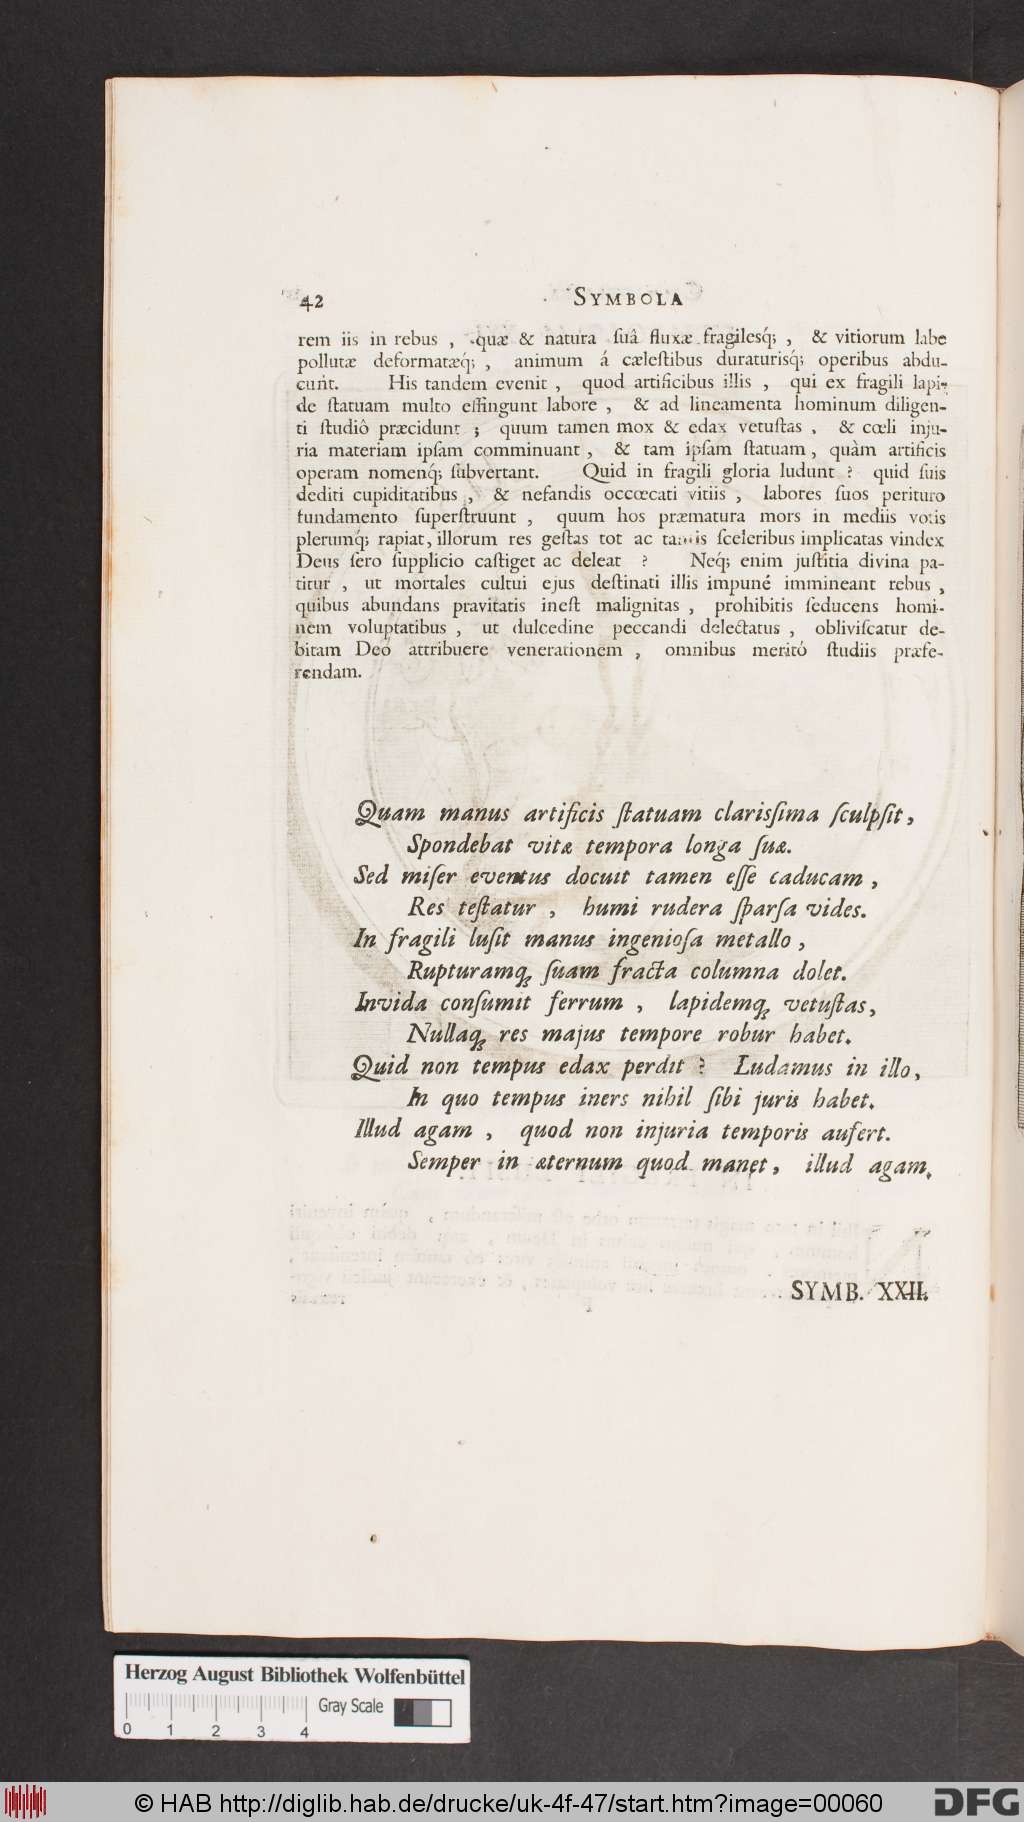 42 SYMBOLA
rem iis in rebus , quæ & natura ſuâ fluxæ fragilesq́; , & vitiorum labe
pollutæ deformatæq́; , animum á cæleſtibus duraturisq́; operibus abdu-
cunt. His tandem evenit , quod artificibus illis , qui ex fragili lapi-
de ſtatuam multo effingunt labore , & ad lineamenta hominum diligen-
ti ſtudiô præcidunt ; quum tamen mox & edax vetuſtas , & cœli inju-
ria materiam ipſam comminuant , & tam ipſam ſtatuam , quàm artificis
operam nomenq́; ſubvertant. Quid in fragili gloria ludunt ? quid ſuis
dediti cupiditatibus , & nefandis occœcati vitiis , labores ſuos perituro
fundamento ſuperſtruunt , quum hos præmatura mors in mediis votis
plerumq́; rapiat, illorum res geſtas tot ac tantis ſceleribus implicatas vindex
Deus ſero ſupplicio caſtiget ac deleat ? Neq́; enim juſtitia divina pa-
titur , ut mortales cultui ejus deſtinati illis impuné immineant rebus ,
quibus abundans pravitatis ineſt malignitas , prohibitis ſeducens homi-
nem voluptatibus , ut dulcedine peccandi delectatus , obliviſcatur de-
bitam Deó attribuere venerationem , omnibus meritó ſtudiis præfe-
rendam.
Quam manus artificis ſtatuam clarisſima ſculpſit,
Spondebat vitæ tempora longa ſuæ.
Sed miſer eventus docuit tamen eſſe caducam ,
Res teſtatur , humi rudera ſparſa vides.
In fragili luſit manus ingenioſa metallo ,
Rupturamq; ſuam fracta columna dolet.
Invida conſumit ferrum , lapidemq; vetuſtas,
Nullaq; res majus tempore robur habet.
Quid non tempus edax perdit ? Ludamus in illo,
In quo tempus iners nihil ſibi juris habet.
Illud agam , quod non injuria temporis aufert.
Semper in æternum quod manet, illud agam.
SYMB. XXII.
Herzog August Bibliothek Wolfenbüttel
Gray Scale
0 1 2 3 4
© HAB http://diglib.hab.de/drucke/uk-4f-47/start.htm?image=00060
DFG